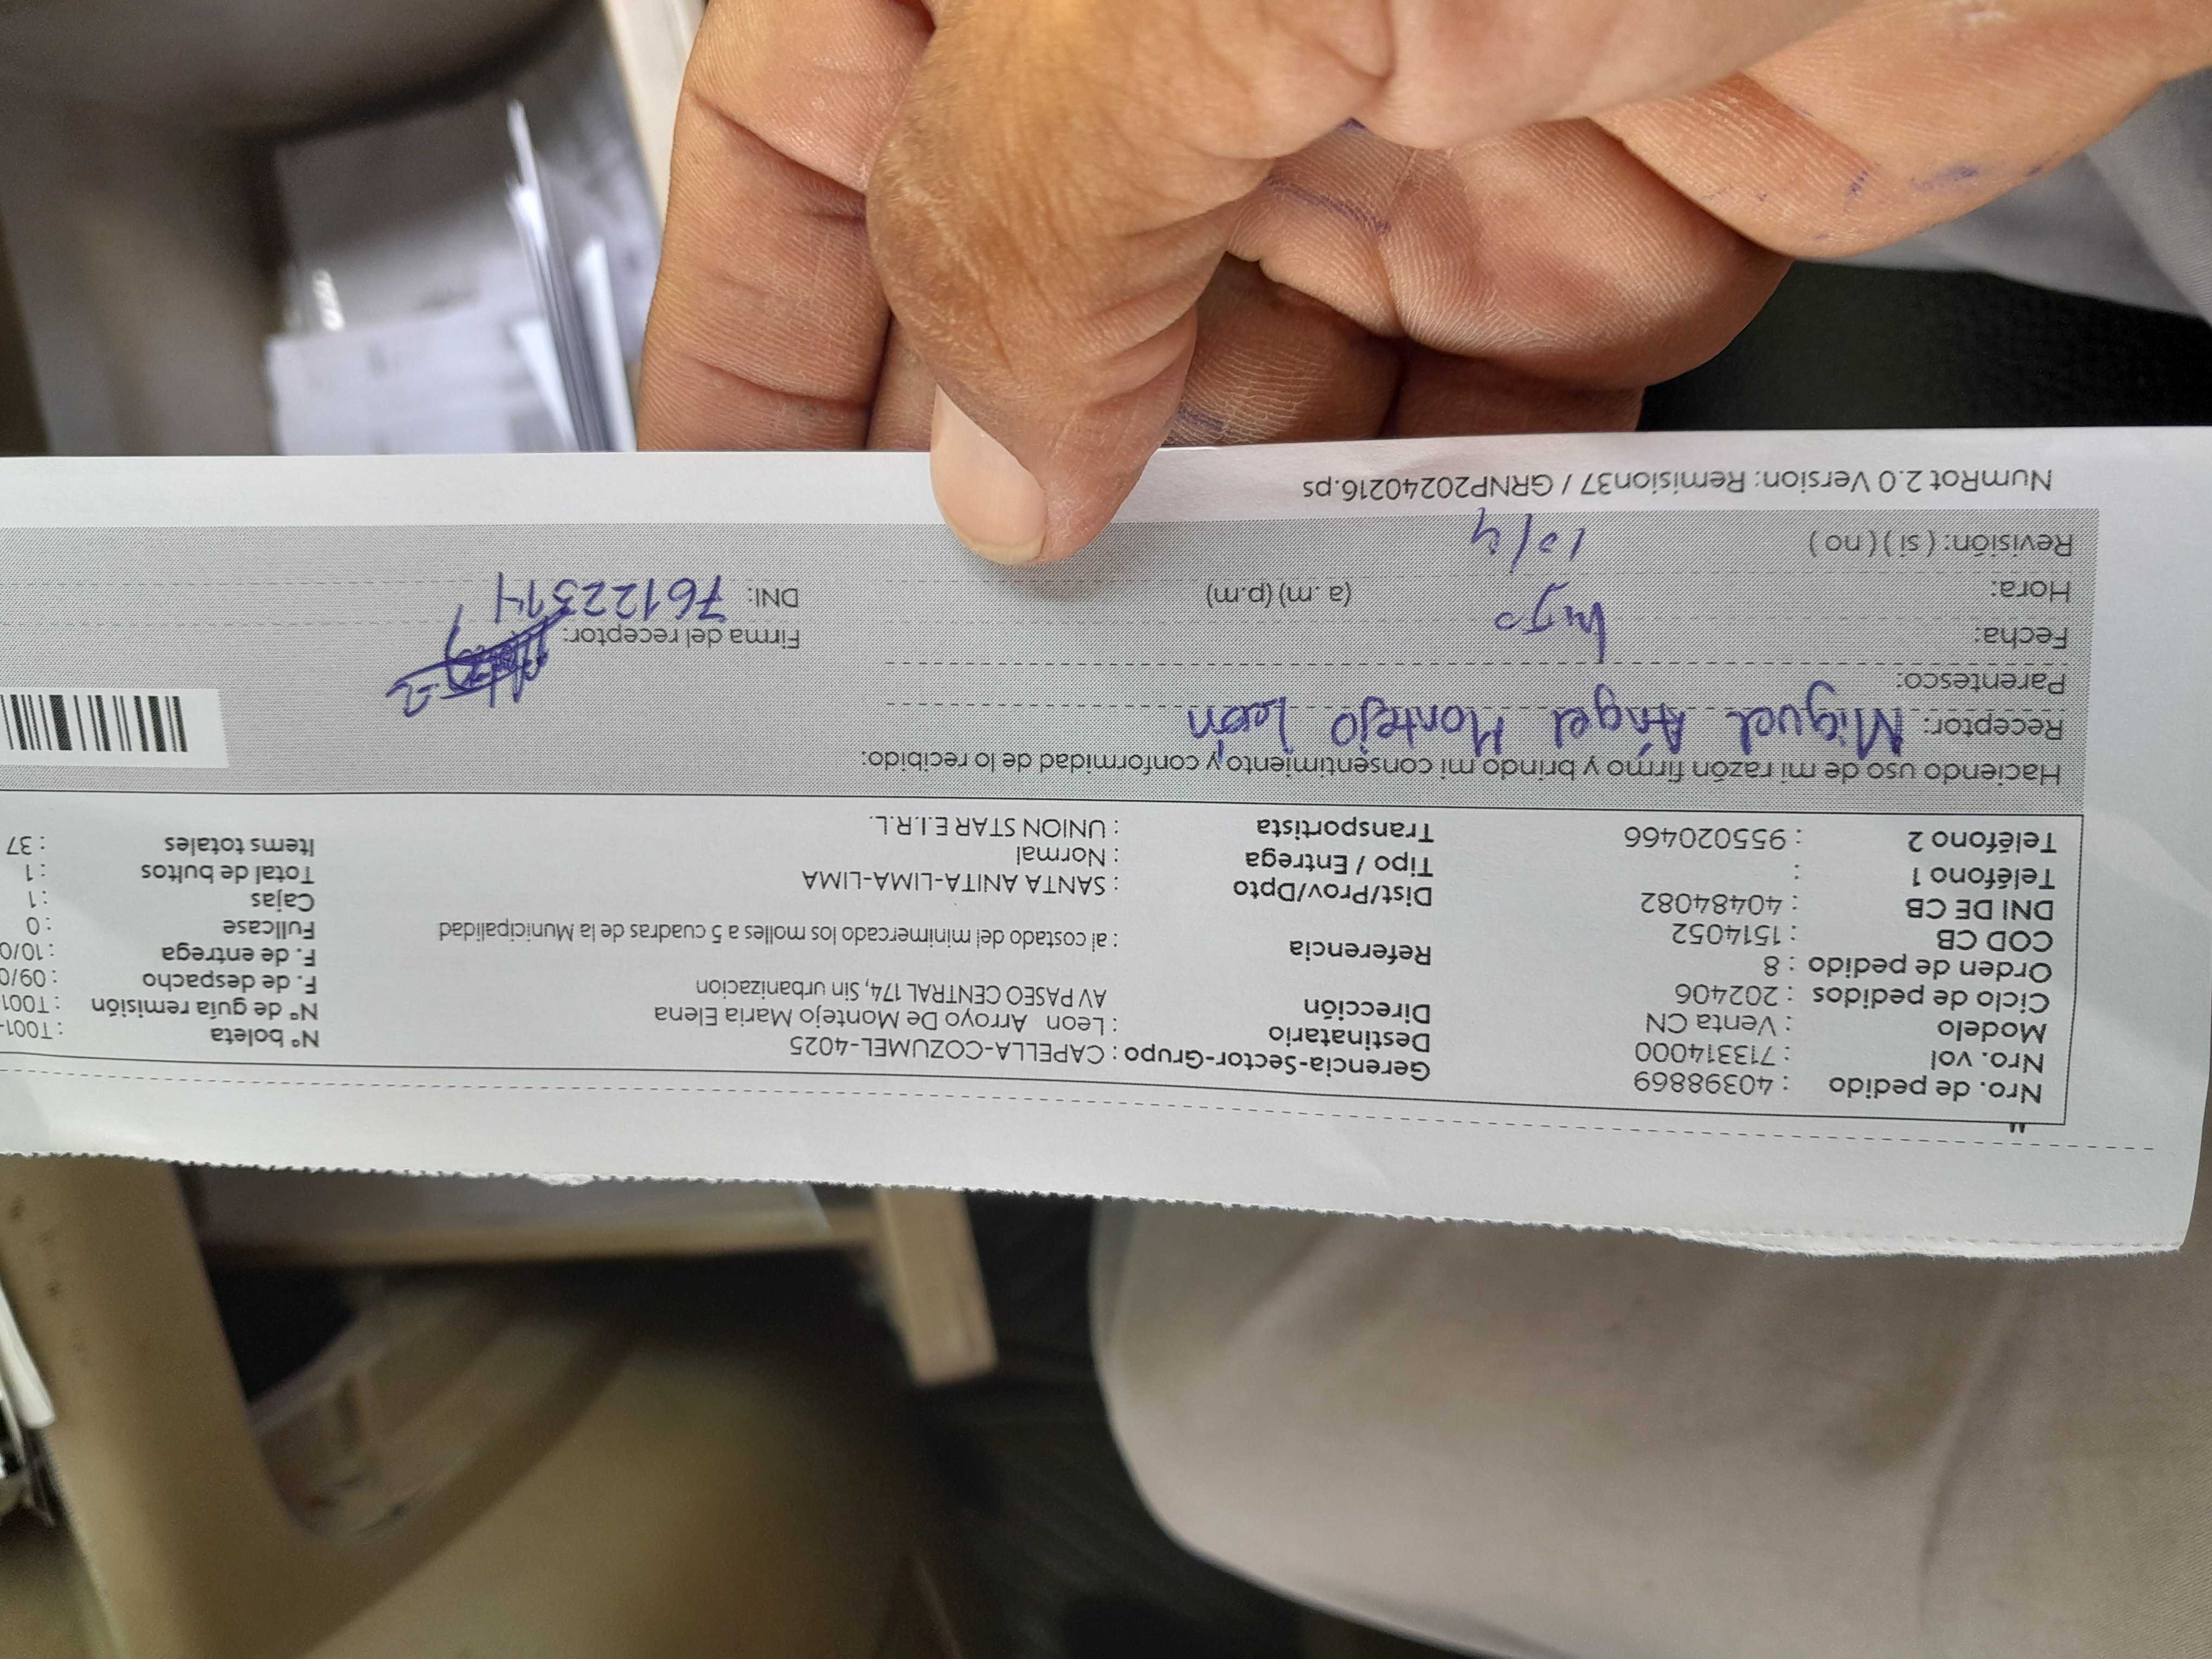 Nro. de pedido : 40398869 Gerencia-Sector-Grupo : CAPELLA-COZUMEL-4025 N° boleta : T001-
Nro. vol : 713314000 Destinatario : Leon Arroyo De Montejo Maria Elena N° de guía remisión : T001
Modelo : Venta CN Dirección AV PASEO CENTRAL 174, Sin urbanizacion F. de despacho : 09/0
Ciclo de pedidos : 202406 F. de entrega : 10/0
Orden de pedido : 8 Referencia : al costado del minimercado los molles a 5 cuadras de la Municipalidad Fullcase : 0
COD CB : 1514052 Cajas : 1
DNI DE CB : 40484082 Dist/Prov/Dpto : SANTA ANITA-LIMA-LIMA Total de bultos : 1
Teléfono 1 : Tipo / Entrega : Normal Items totales : 37
Teléfono 2 : 955020466 Transportista : UNION STAR E.I.R.L.
Haciendo uso de mi razón firmo y brindo mi consentimiento y conformidad de lo recibido:
Receptor: Miguel Ángel Montejo León
Parentesco:
Fecha: hijo Firma del receptor:
Hora: (a .m) (p.m) DNI: 76122314
Revisión: ( si ) ( no ) 10/4
NumRot 2.0 Version: Remision37 / GRNP20240216.ps